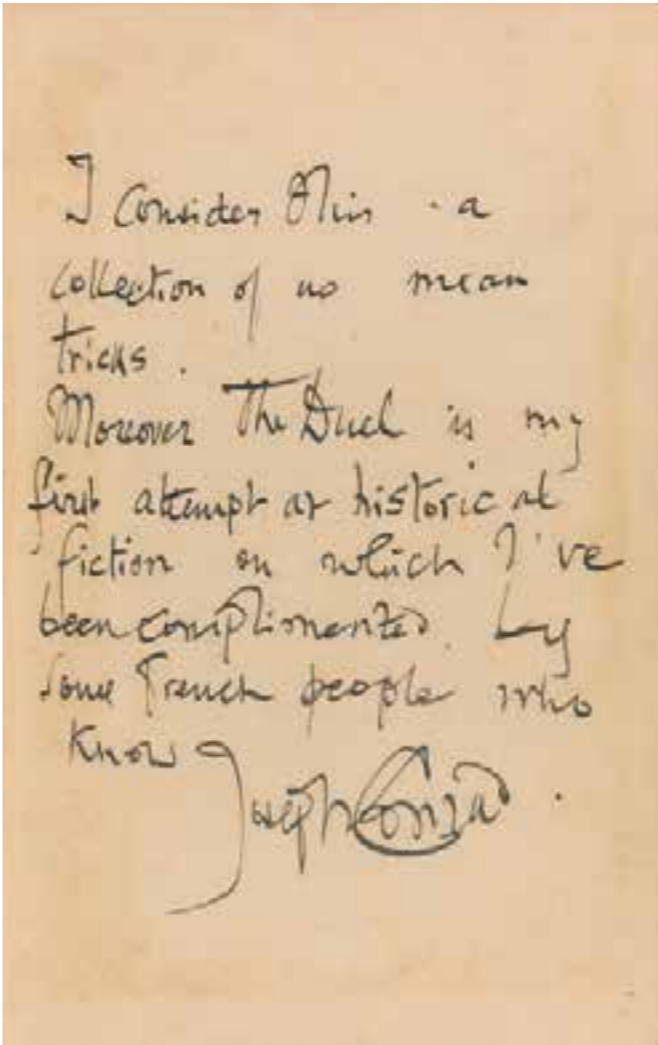 I Consider this a
collection of no mean
tricks.
Moreover The Duel is my
first attempt at historical
fiction on which I've
been complimented by
some French people who
know
Joseph Conrad.